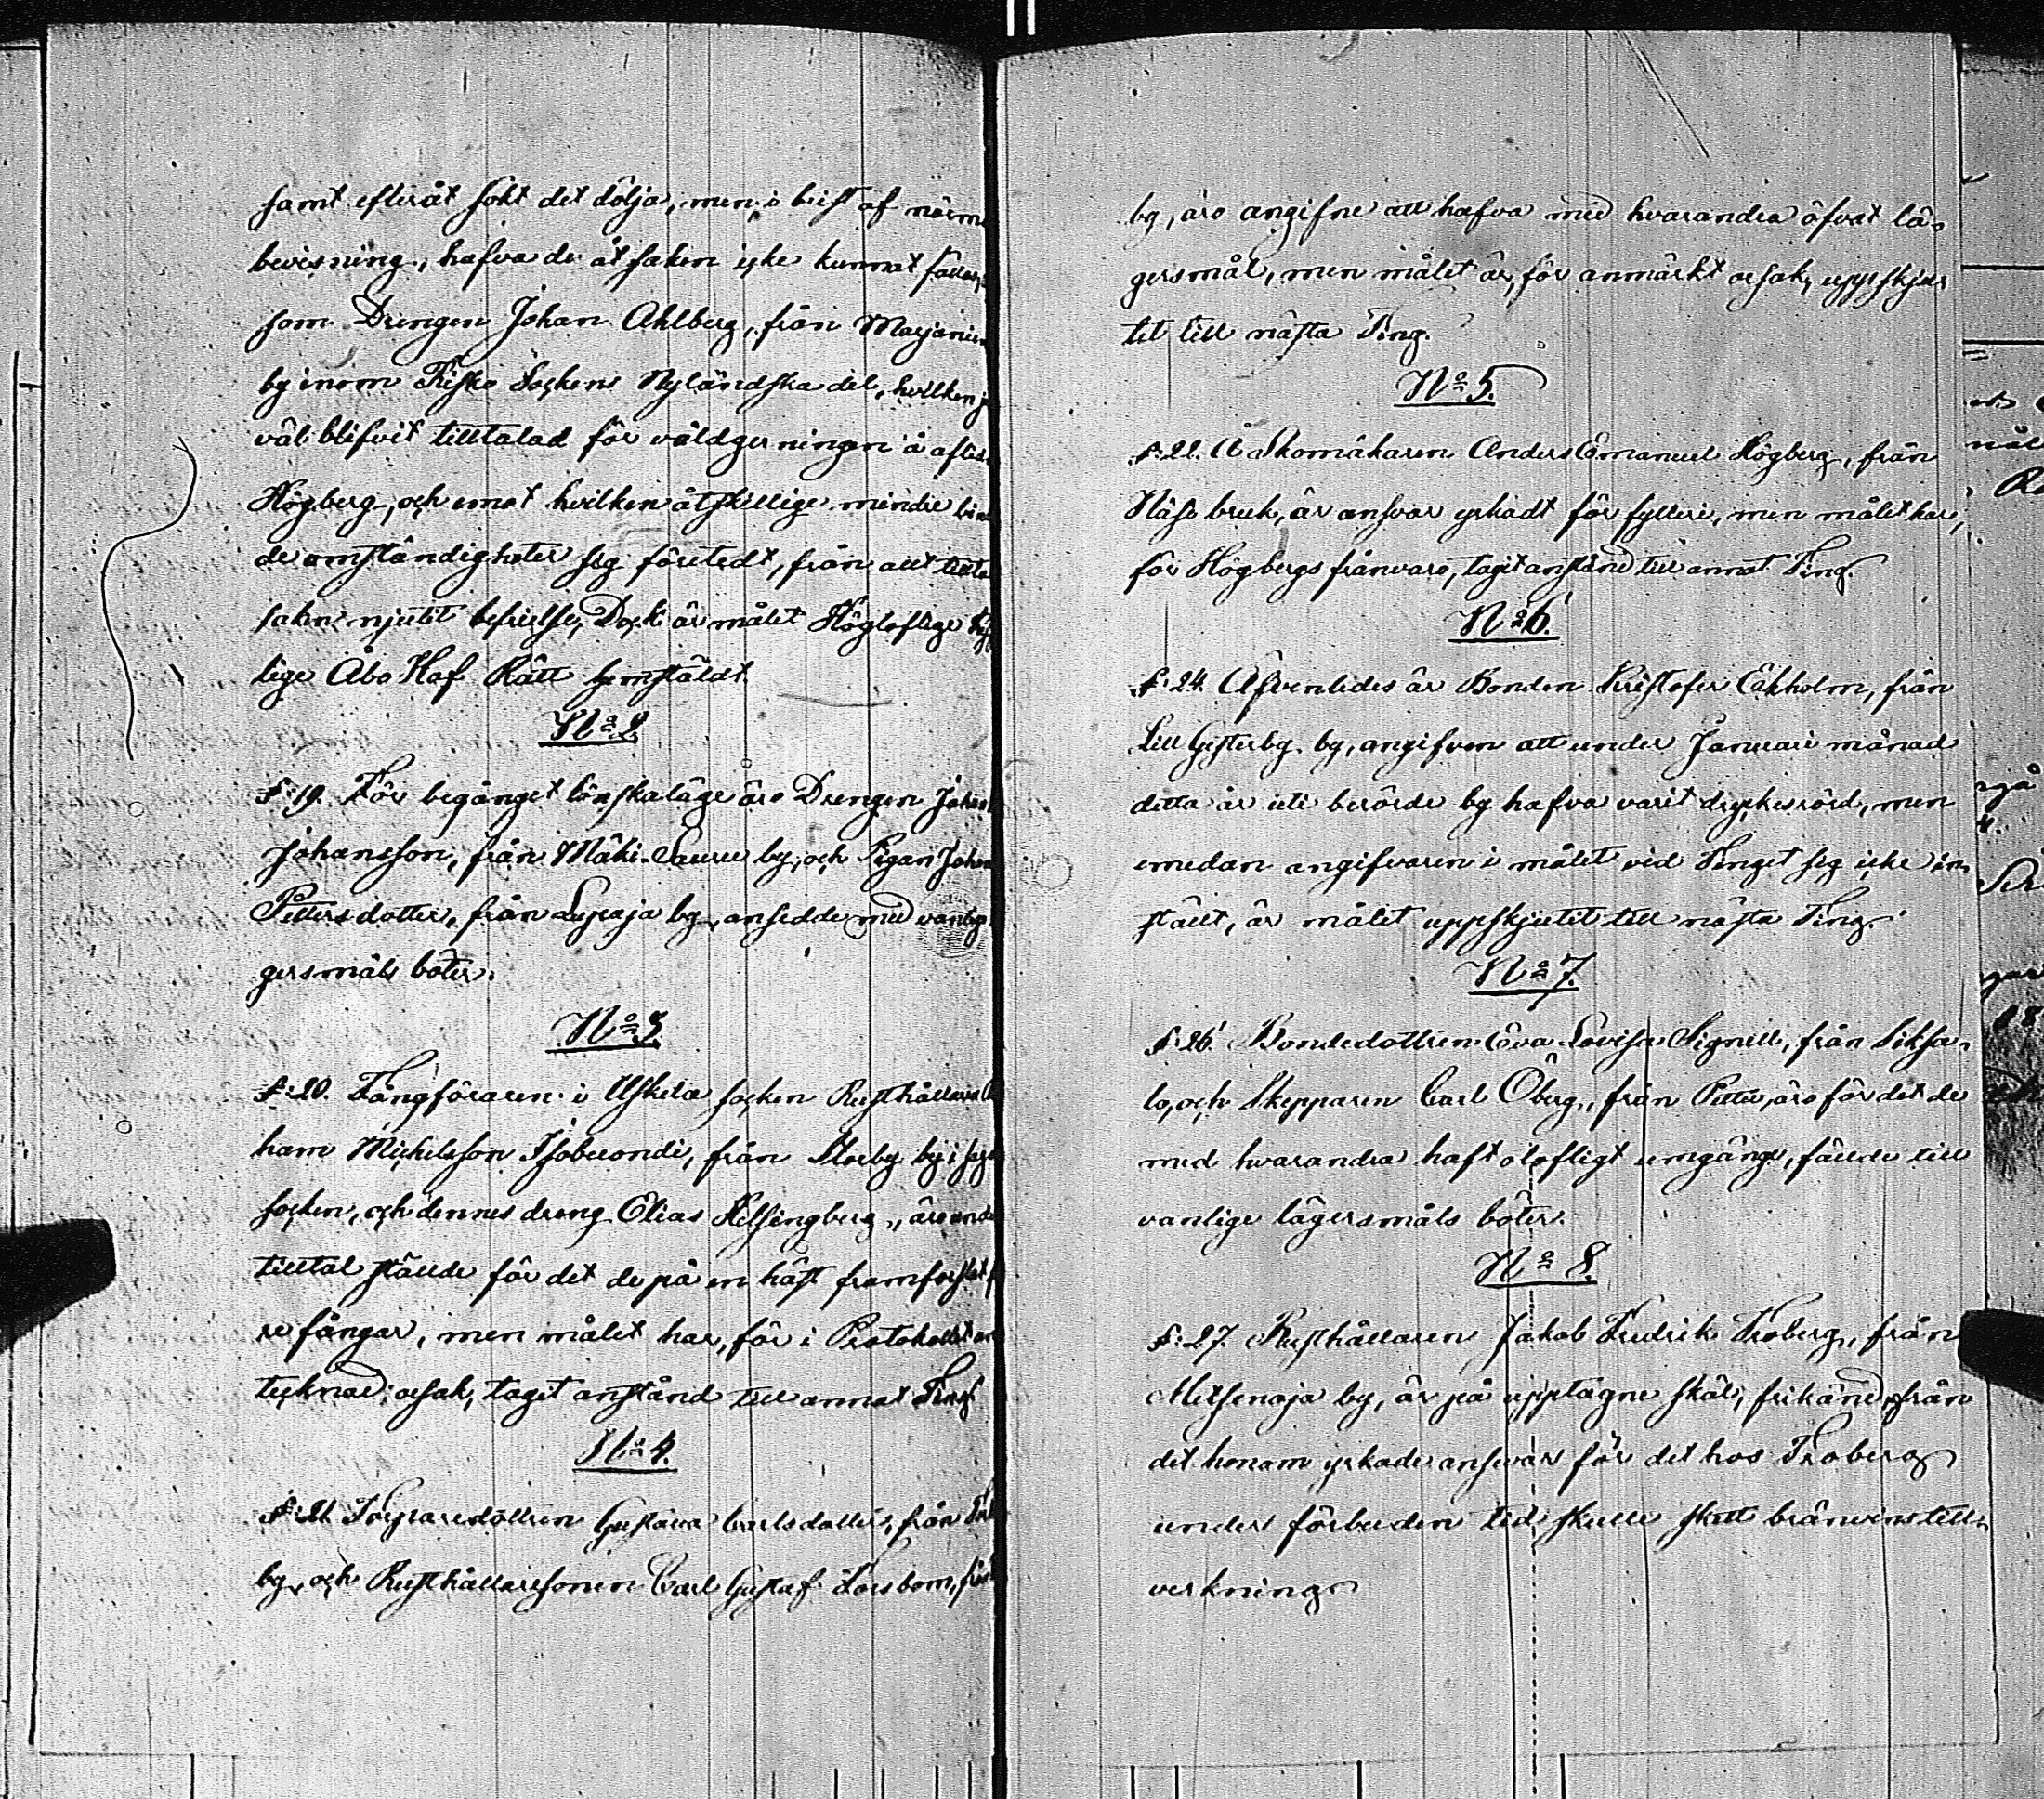 samt efteråt sökt det dölja, men, i brist af närma
bevisning, hafva de åt saken icke kunnat fällas,
som Drengen Johan Ahlberg, från Marjanie
by inom Kisko Sockens Nyländska del, hvilken j
väl blifvit tilltalad för våldgerningen å aflid
Högberg, och emot hvilken åtskillige mindre bin
de omständigheter sig företedt, från allt tillta
saken njutit befrielse, Dock är målet Högloflige
lige Åbo Hof Rätt hemstäldt.
No 2.
§: 19. För begånget lönskaläge äro Drengen Johan
Johansson, från Mäki-Lauru by, och Pigan Johan
Petters dotter, från Lupaja by, ansedde med vanlig
gersmåls böter.
No 3.
§: 20. Fångföraren i Uskela socken Rusthållaren
ham Michelsson, från Storby by i
socken, och dennes dreng Elias Helsingberg, äro under
tilltal stälde för det de på en häst framforslat
re fångar, men målet har, för i Protokollet an
tecknad orsak, taget anstånd till annat Ting
No 4.
§: 21. Torparedottren Gustava Carlsdotter, från
by, och Rusthållaresonen Carl Gustaf Forsbom, från
by, äro angifne att hafva med hvarandra öfvat lä,
gersmål, men målet är, för anmärkt orsak, uppskju,
tet till nästa Ting.
No 5.
§: 22. Å Skomakaren Anders Emanuel Högberg, från
Näse bruk, är ansvar yrkadt för fylleri, men målet har,
för Högbergs frånvaro, tagit anstånd till annat Ting.
No 6.
§: 24. Äfvenledes är Bonden Kristofer Ekholm, från
Lill Gesterby by, angifven att under Januari månad
detta år uti berörde by hafva varit dryckesrörd, men
emedan angifvaren i målet vid Tinget sig icke in,
stält, är målet uppskjutit till nästa Ting.
No 7.
§: 26. Bondedottren Eva Lovisa Signell, från Siksa,
lo, och Skepparen Carl Öberg, från Pettu, äro för det de
med hvarandra haft olofligt umgänge, fälde till
vanlige lägersmåls böter.
No 8.
§: 27. Rusthållaren Jakob Fredrik Froberg, från
Metsenoja by, är på upptagne skäl, frikänd från
det honom yrkade ansvar för det hos Froberg
under förbuden tid skulle skett bränvinstill,
verkning